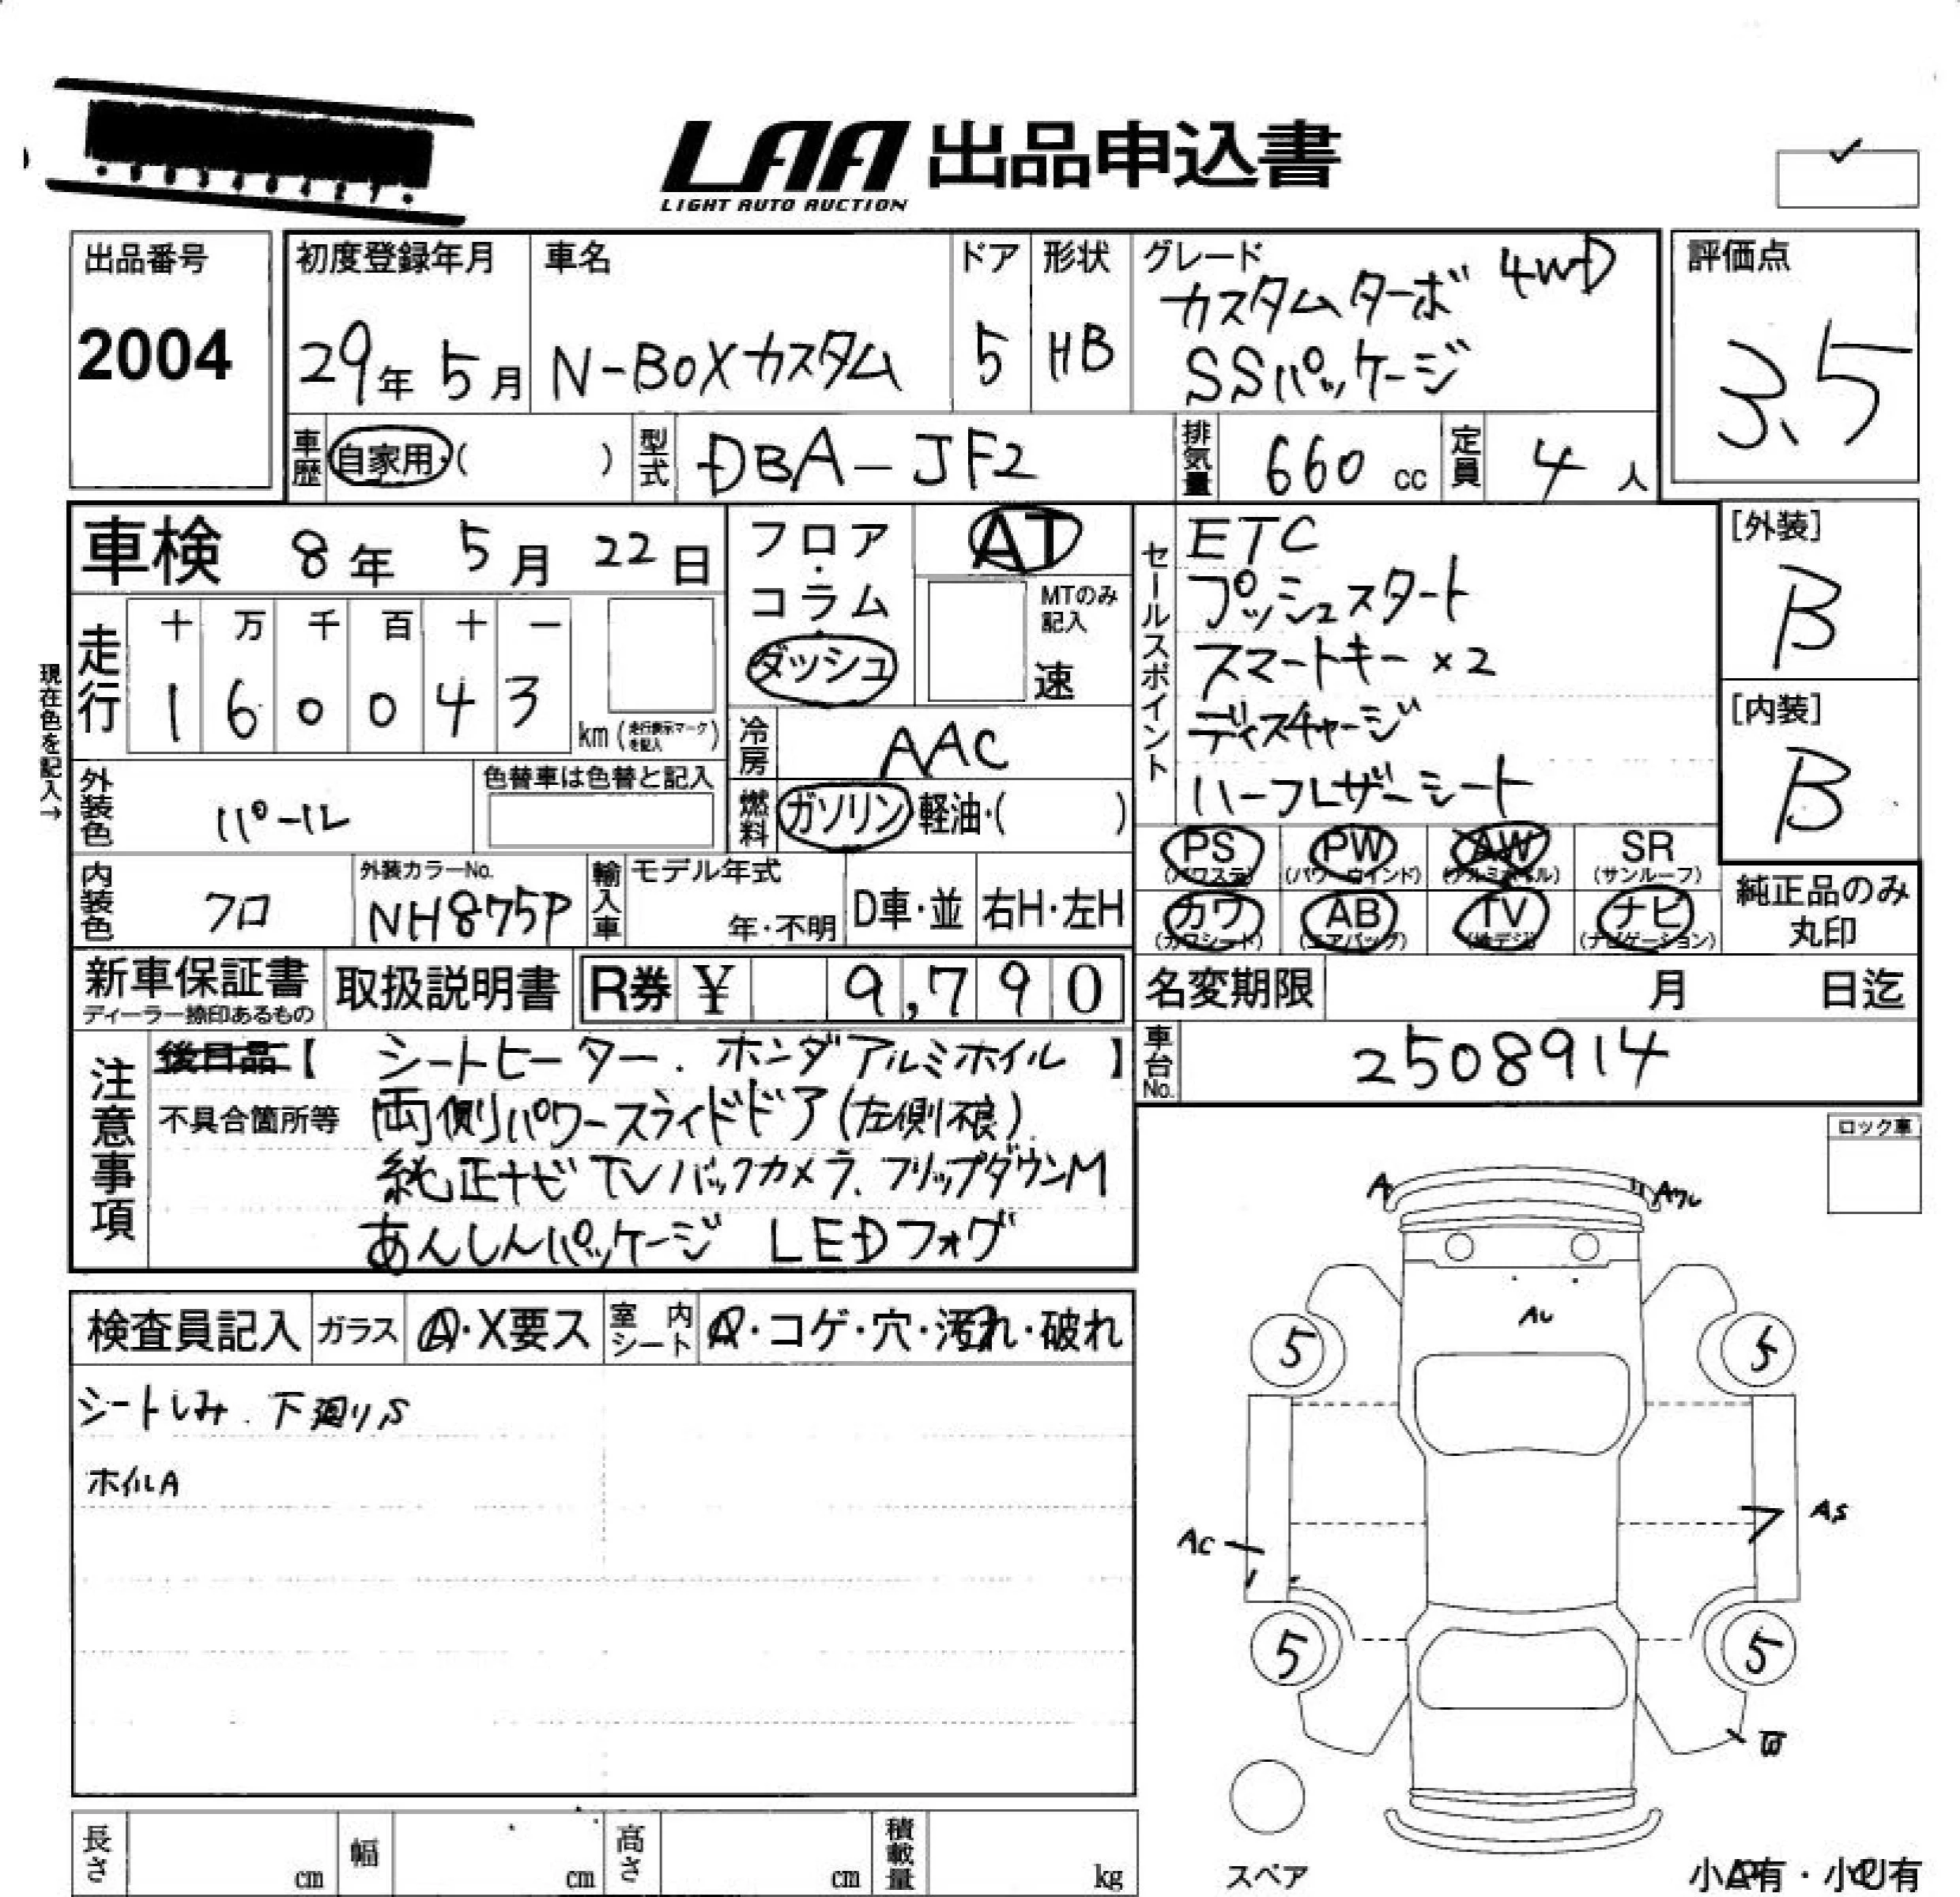 LAA 出品申込書
LIGHT AUTO AUCTION
出品番号
2004
初度登録年月
29年 5月
車名
N-BOXカスタム
ドア
5
形状
HB
グレード
カスタムターボ 4WD
SSパッケージ
評価点
3.5
車歴 自家用・( )
型式 DBA-JF2
排気量 660 cc
定員 4 人
車検 8年 5月 22日
フロア・コラム・ダッシュ
AT
MTのみ記入
速
セールスポイント
ETC
プッシュスタート
スマートキー×2
ディスチャージ
ハーフレザーシート
[外装]
B
[内装]
B
現在色を記入→
走行
十 万 千 百 十 一
1 6 0 0 4 3
km (走行表示マークを記入)
冷房 AAC
外装色 パール
色替車は色替と記入
燃料 ガソリン 軽油・( )
PS (パワステ)
PW (パワーウインド)
AW (アルミホイル)
SR (サンルーフ)
カワ (カワシート)
AB (エアバッグ)
TV (地デジ)
ナビ (ナビゲーション)
純正品のみ
丸印
内装色 クロ
外装カラーNo.
NH875P
輸入車
モデル年式
年・不明
D車・並
右H・左H
新車保証書
ディーラー捺印あるもの
取扱説明書
R券 ¥ 9,790
名変期限 月 日迄
車台No. 2508914
注意事項
後日品【 シートヒーター. ホンダアルミホイル 】
不具合箇所等 両側パワースライドドア(左側不良)
純正ナビTVバックカメラ、フリップダウンM
あんしんパッケージ LEDフォグ
ロック車
検査員記入
ガラス A・X要ス
室内シート A・コゲ・穴・汚れ・破れ
シートしみ. 下廻りS
ホイルA
A
AU
5
5
AC
AS
5
5
スペア
小A有・小U有
長さ cm
幅 cm
高さ cm
積載量 kg